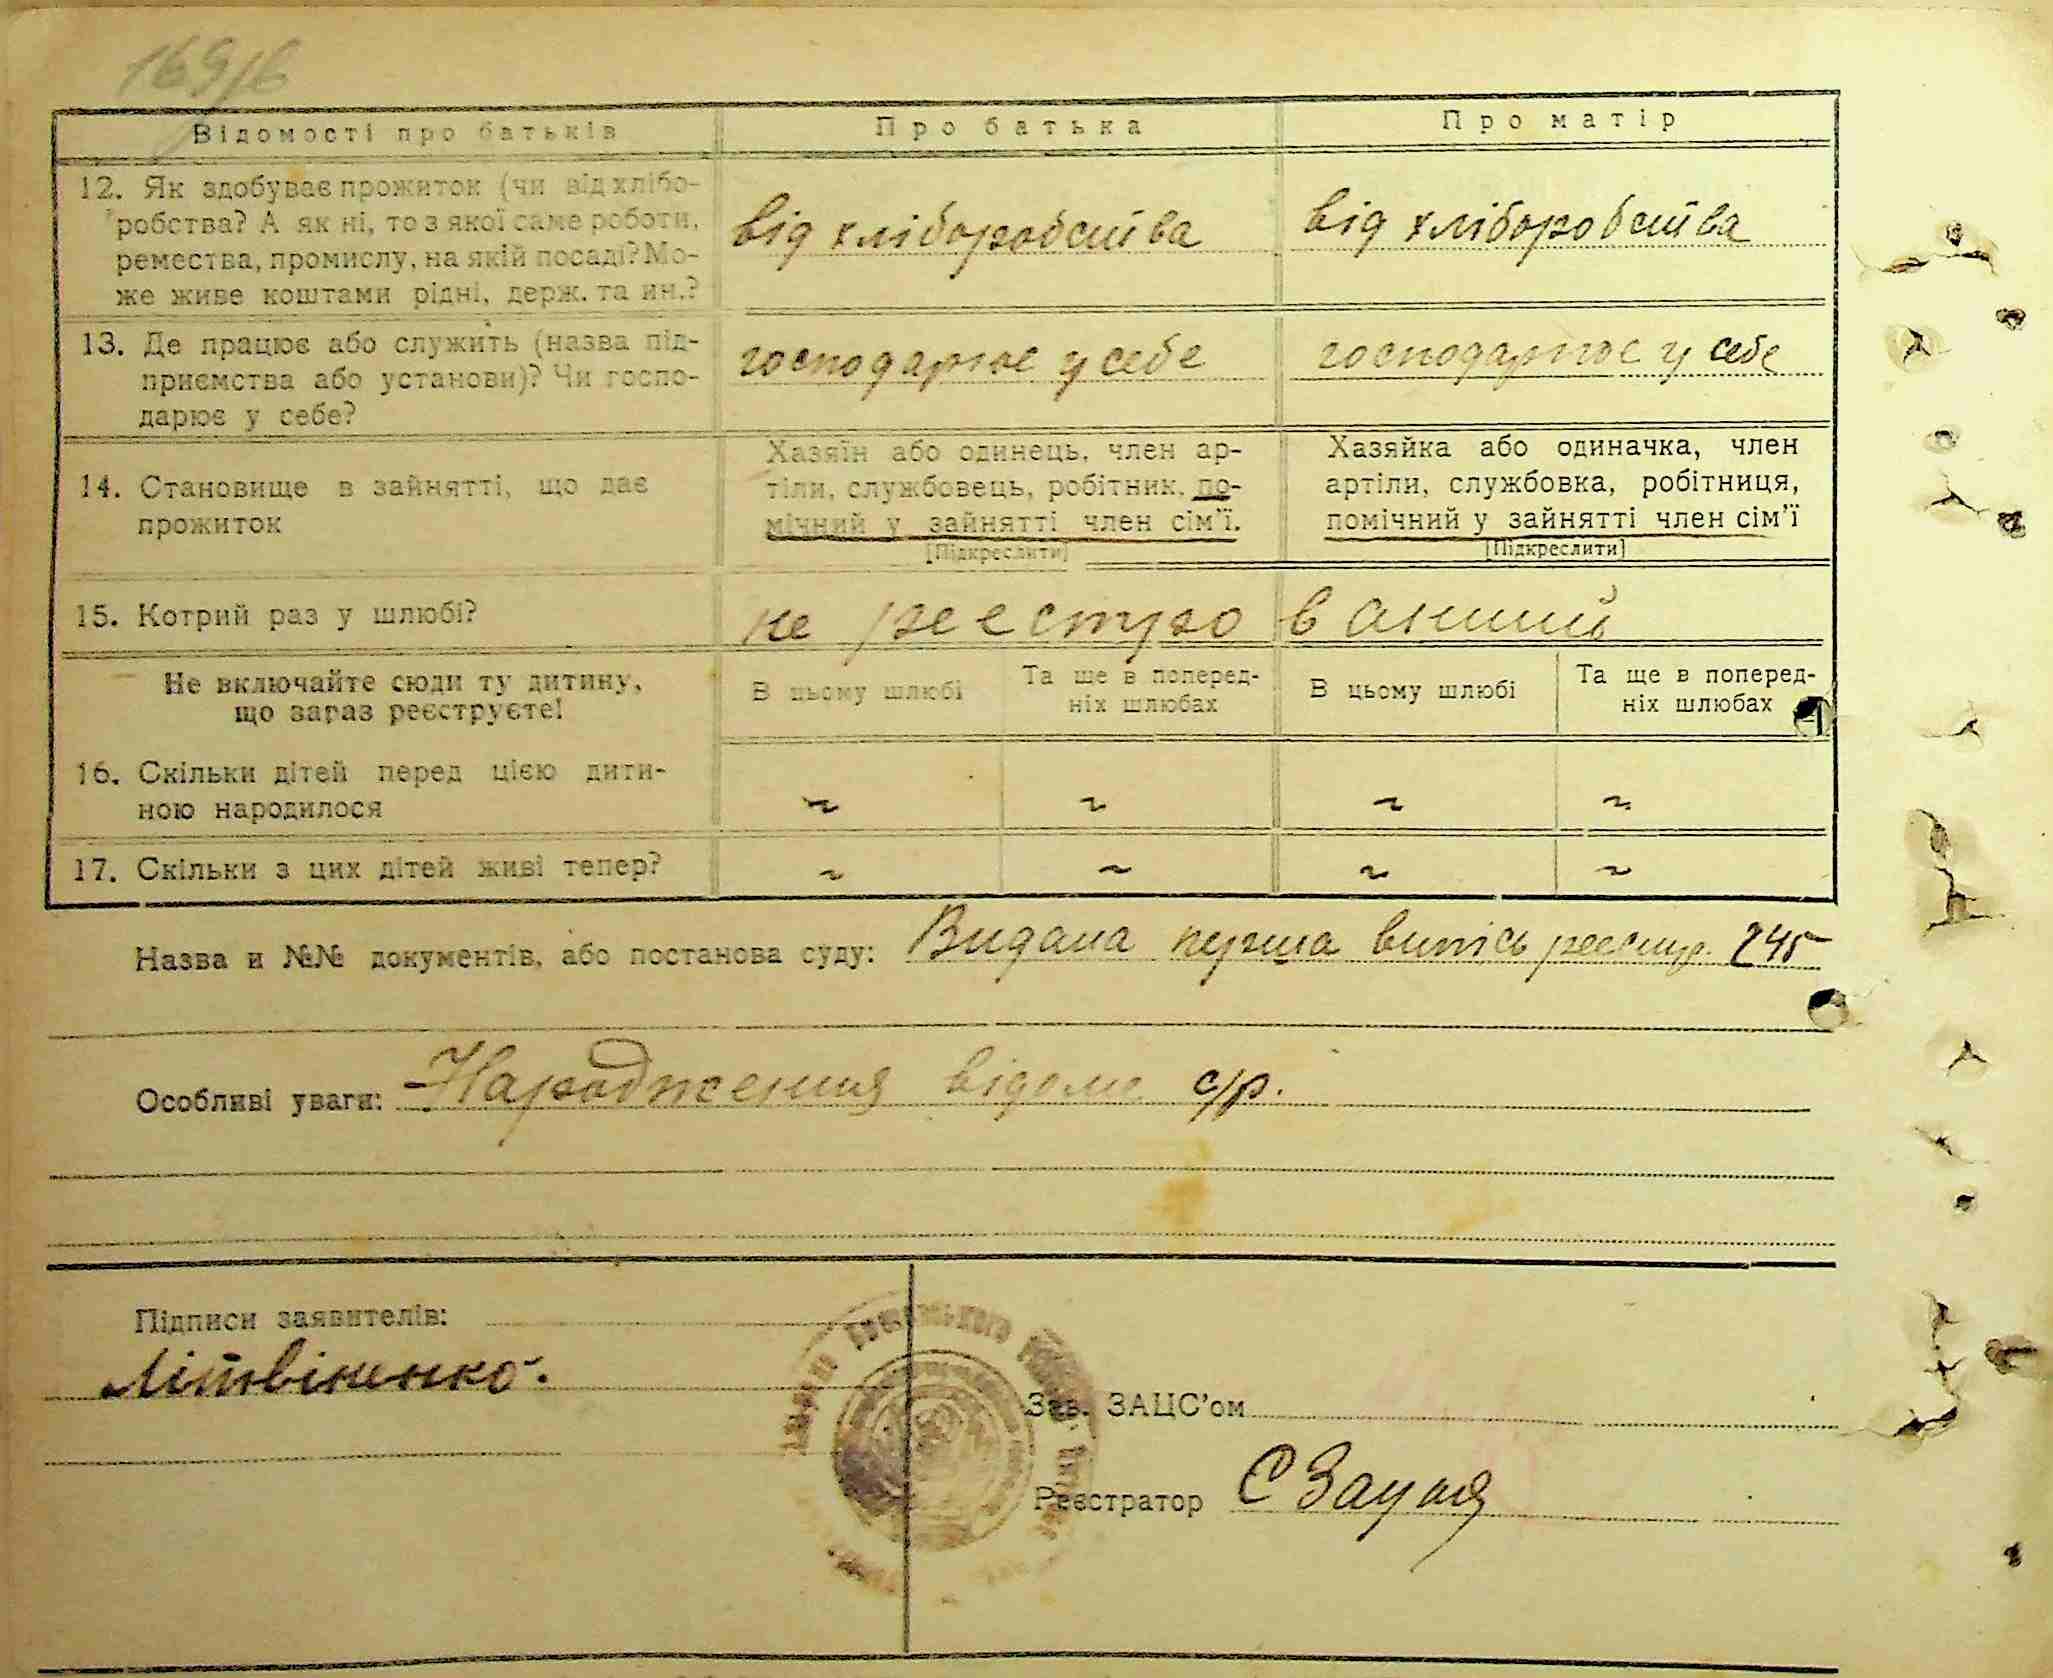 169/6
Відомості про батьків
Про батька
Про матір
12. Як здобуває прожиток (чи від хлібо-
робства? А як ні, то з якої саме роботи,
ремества, промислу, на якій посаді? Мо-
же живе коштами рідні, держ. та ин.?
від хліборобства
від хліборобства
13. Де працює або служить (назва під-
приємства або установи)? Чи госпо-
дарює у себе?
господарює у себе
господарює у себе
14. Становище в зайнятті, що дає
прожиток
Хазяїн або одинець, член ар-
тіли, службовець, робітник, по-
мічний у зайнятті член сім'ї.
[Підкреслити]
Хазяйка або одиначка, член
артіли, службовка, робітниця,
помічний у зайнятті член сім'ї
[Підкреслити]
15. Котрий раз у шлюбі?
не реестро ваний
Не включайте сюди ту дитину,
що зараз реєструєте!
В цьому шлюбі
Та ще в поперед-
ніх шлюбах
В цьому шлюбі
Та ще в поперед-
ніх шлюбах
16. Скільки дітей перед цією дити-
ною народилося
~ ~ ~ ~
17. Скільки з цих дітей живі тепер?
~ ~ ~ ~
Назва и №№ документів, або постанова суду: Видана перша випісь реестр. 245
Особливі уваги: Народження відоме с/р.
Підписи заявителів:
Літвіненко.
Зав. ЗАЦС'ом
Реєстратор С